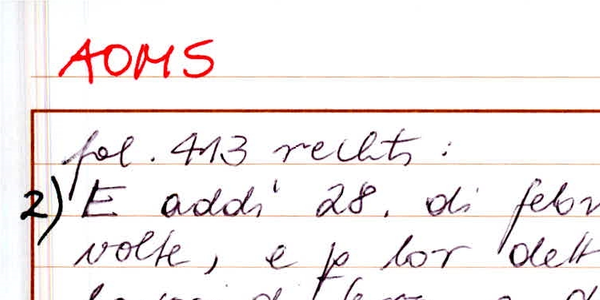 AOMS
fol. 413 rechts:
2) E addi' 28. di febr
volte, e p lor dett